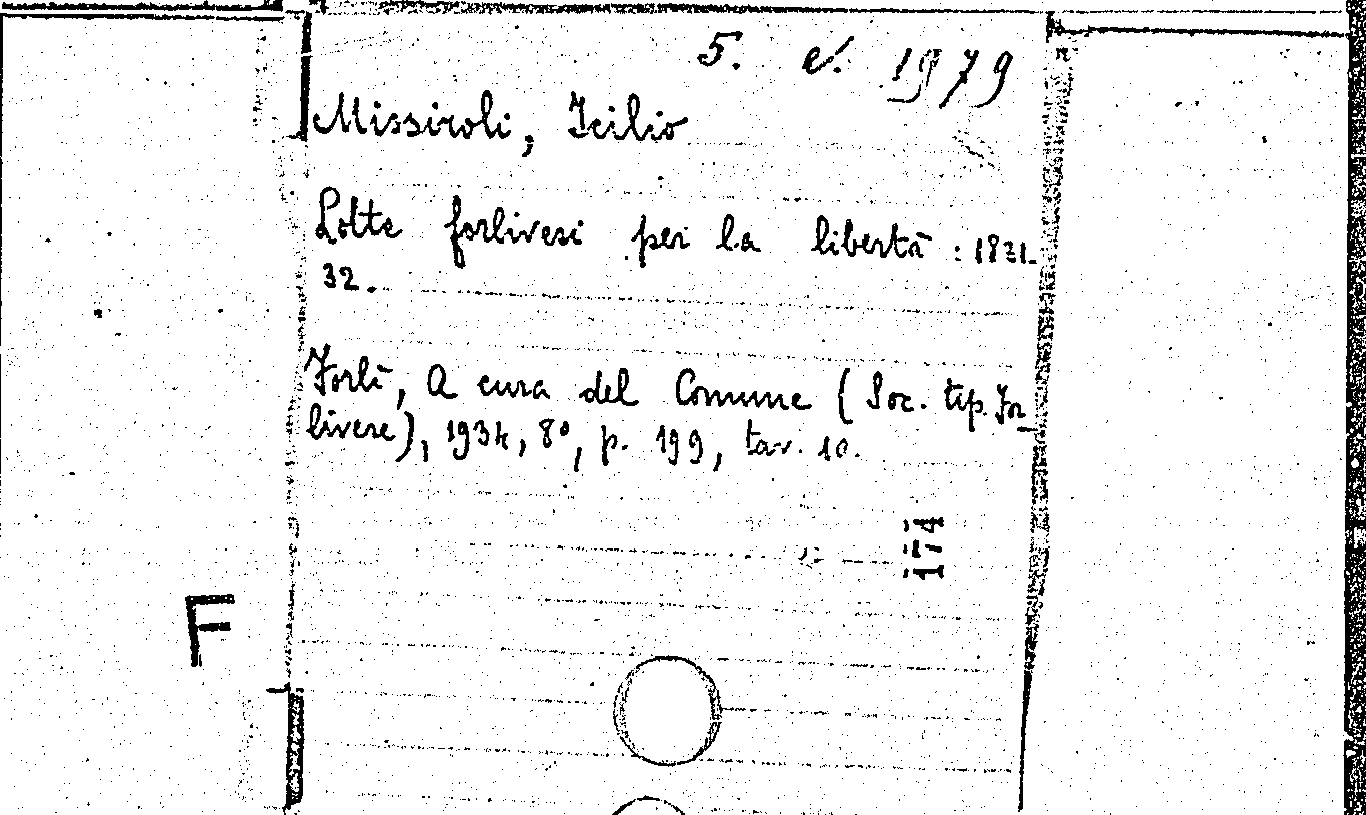 5. e. 1979
Missiroli, Icilio
Lotte forlivesi per la libertà : 1831-
32.
Forlì, A cura del Comune (Soc. tip. For-
livese), 1934, 8°, p. 199, tav. 10.
174
F